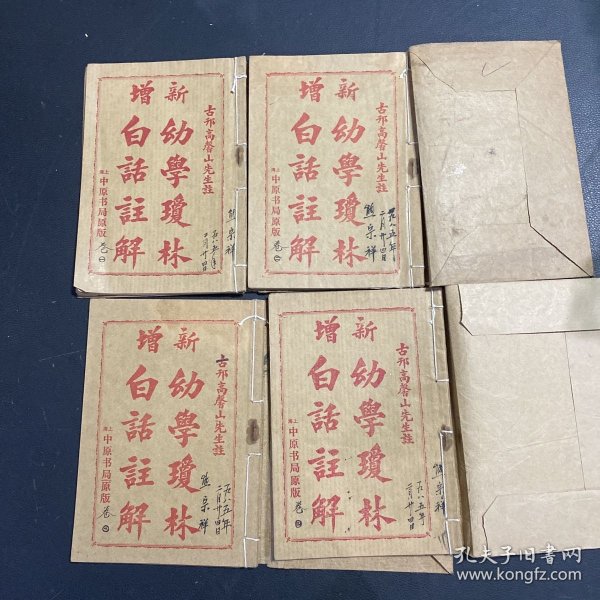 新增
幼學瓊林
白話註解
古邗高馨山先生註
上海中原书局原版
卷一
熊宗祥
一九八五年
二月廿四日
新增
幼學瓊林
白話註解
古邗高馨山先生註
上海中原书局原版
卷二
熊宗祥
一九八五年
二月廿四日
新增
幼學瓊林
白話註解
古邗高馨山先生註
上海中原书局原版
卷
熊宗祥
一九八五年
二月廿四日
新增
幼學瓊林
白話註解
古邗高馨山先生註
上海中原书局原版
卷
熊宗祥
一九八五年
二月廿四日
孔夫子旧书网
www.kongfz.com